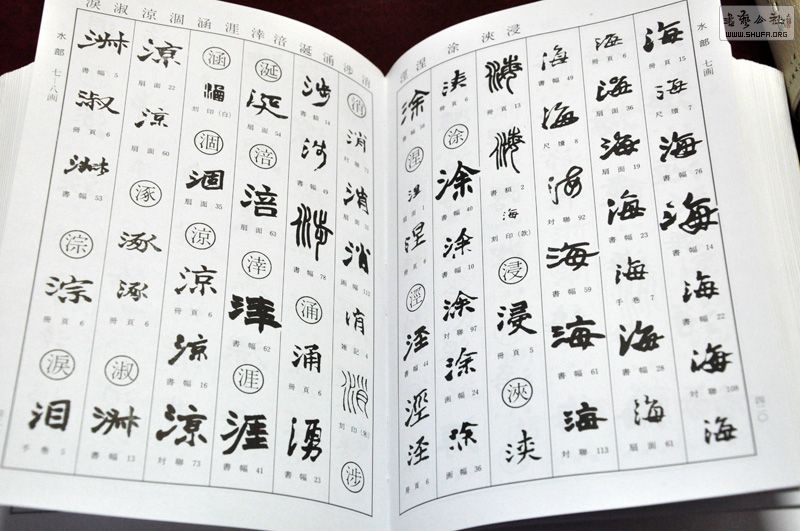 書藝公社
WWW.SHUFA.ORG
水部 七画
浸 浹 涂 涅 涇
海 書幅 15 海 尺牘 7 海 書幅 76 海 書幅 14 海 書幅 22 海 封聯 108 海
海 書幅 海 扇面 36 海 扇面 19 海 書幅 23 海 手卷 7 海 書幅 28 海 扇面 61
海 書幅 49 海 尺牘 8 海 封聯 92 海 書幅 59 海 書幅 61 海 封聯 113
海 冊頁 13 海 書額 2 海 刻印(款) 浸 浸 冊頁 5 浹 浹
浹 冊頁 6 涂 涂 書幅 40 涂 書幅 10 涂 封聯 97 涂 画幅 24 涂 画幅 36
涂 書幅 涅 涅 扇面 1 涅 冊頁 6 涇 涇 書幅 44 涇 涇 冊頁 6
四二〇
水部 七-八画
消 涉 涌 涎 涪 涬 涯 涵 涸 涼 淑 淚
消 消 封聯 消 扇面 消 画幅 112 消 雜記 4 消 刻印(朱) 涉
涉 書額 14 涉 書幅 49 涉 書幅 78 涌 涌 冊頁 6 湧 書幅 23
涎 涎 扇面 54 涪 涪 扇面 63 涬 涬 書幅 62 涯 涯 書幅 41
涵 涵 刻印(白) 涸 涸 扇面 35 涼 涼 冊頁 6 涼 書幅 16 涼 封聯 73
涼 扇面 22 涼 扇面 60 涿 涿 冊頁 6 涿 冊頁 6 淑 淑 書幅 13
淑 書幅 5 淑 冊頁 6 淑 書幅 53 淙 淙 冊頁 6 淚 泪 手卷 5